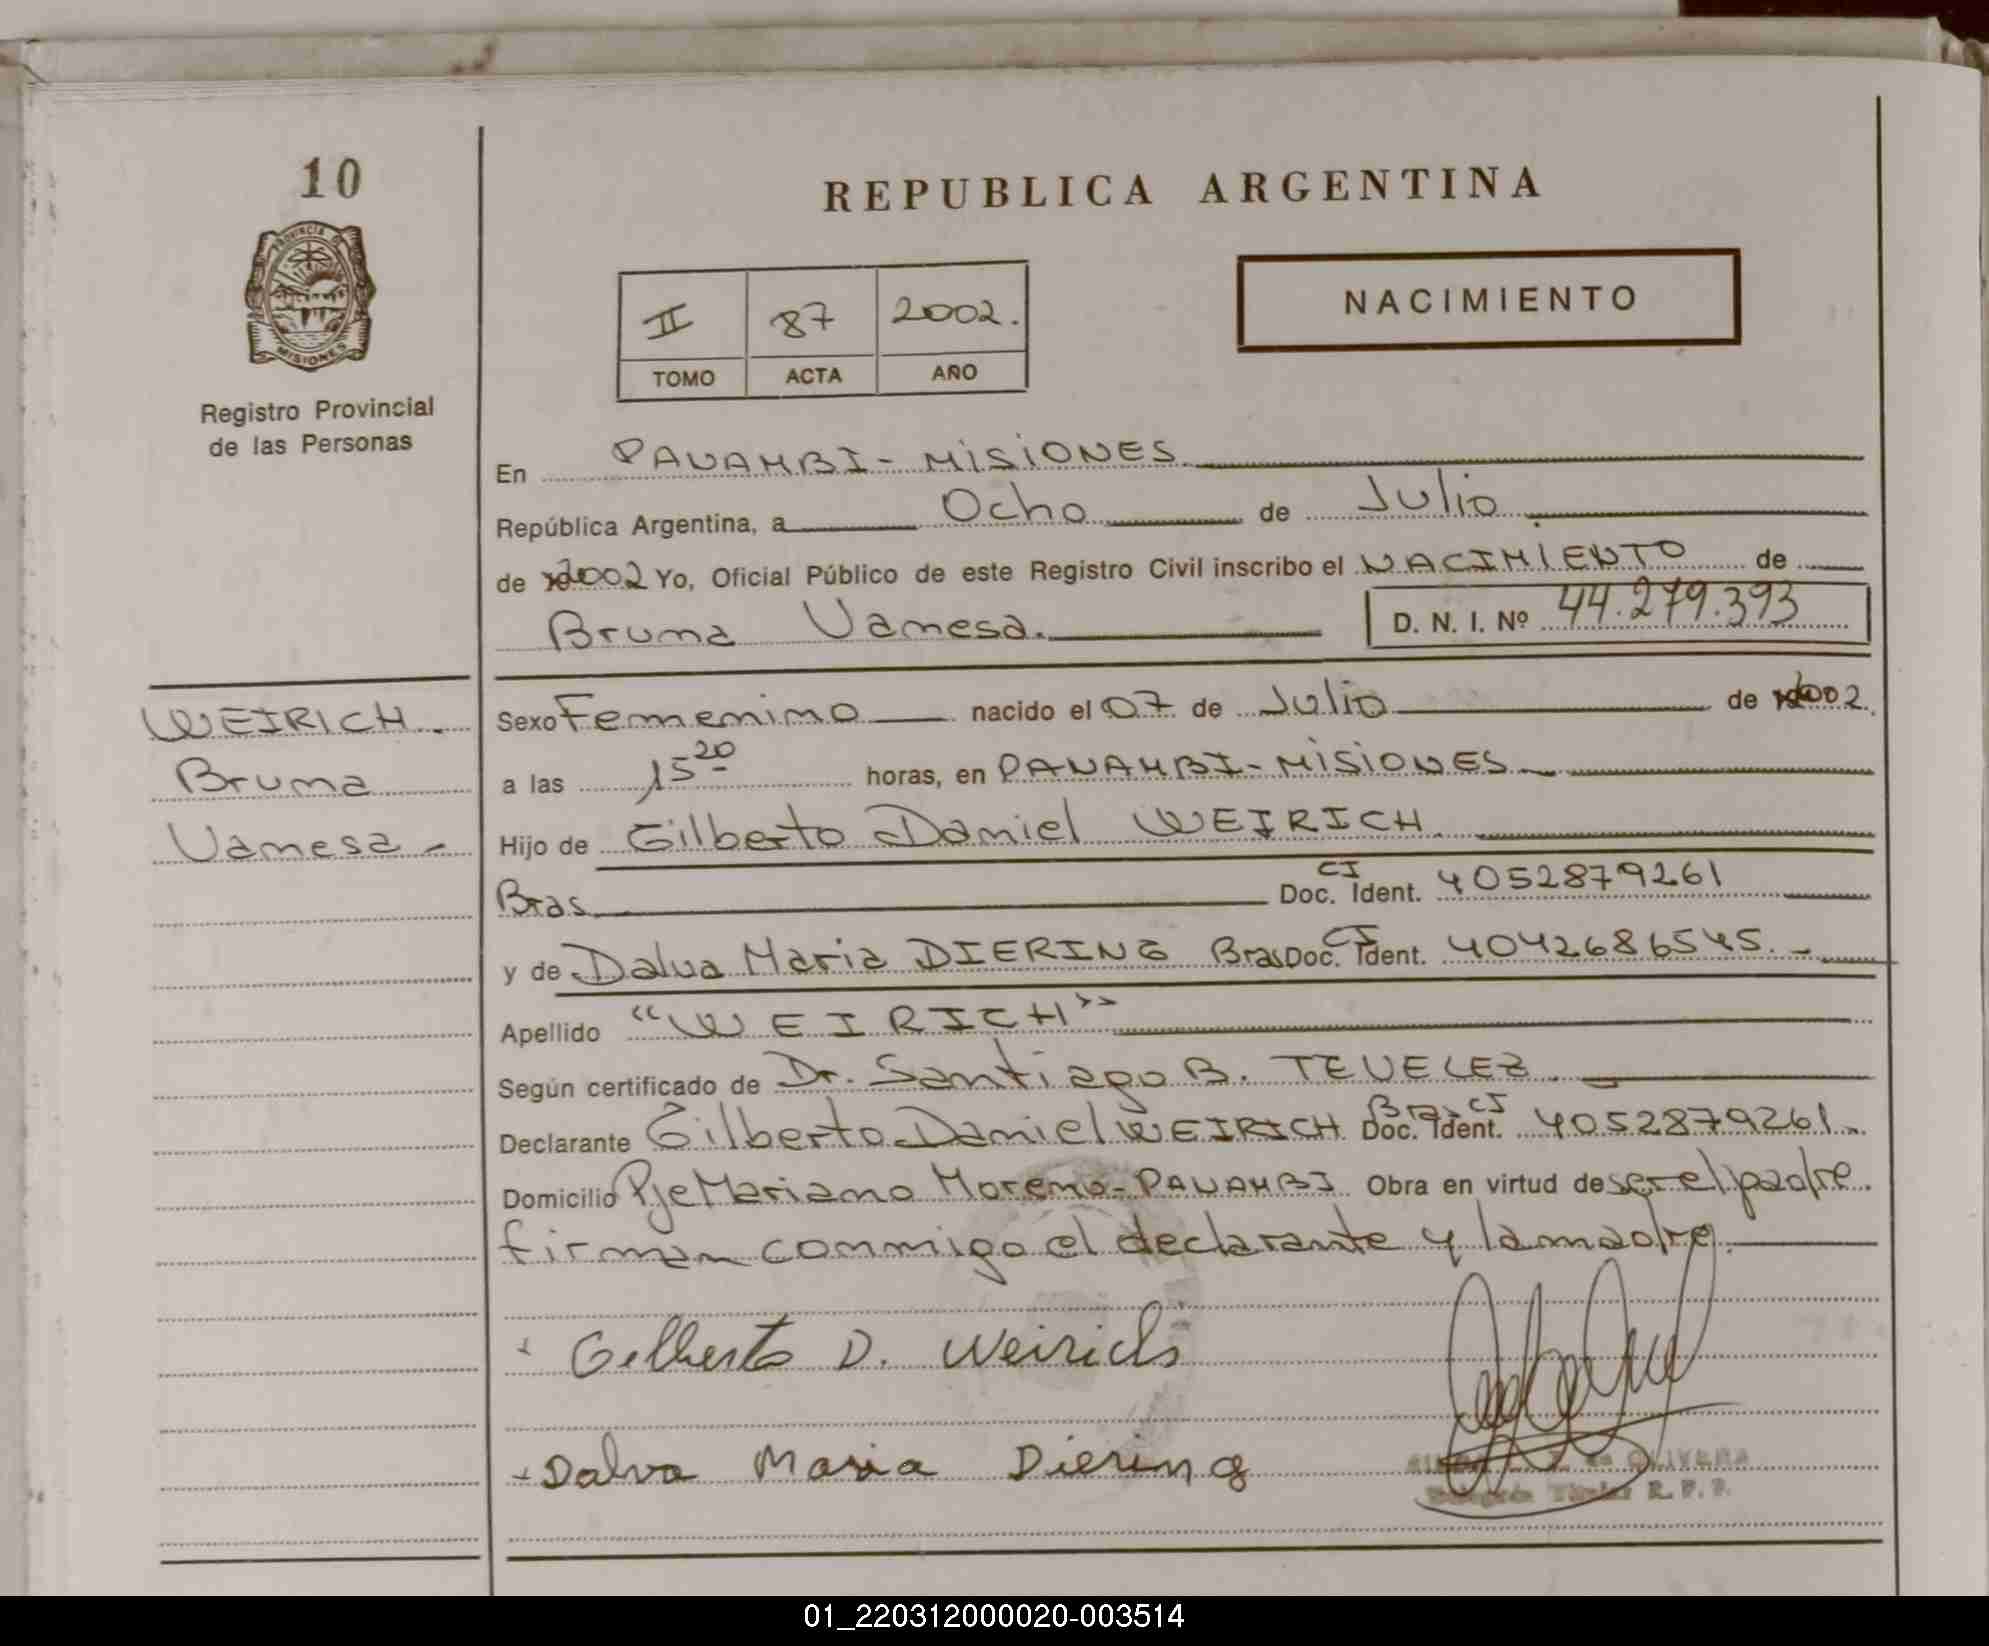 10
PROVINCIA DE
MISIONES
Registro Provincial
de las Personas
REPUBLICA ARGENTINA
II 87 2002.
TOMO ACTA AÑO
NACIMIENTO
En PANAMBI - MISIONES
República Argentina, a Ocho de Julio
de 2002 Yo, Oficial Público de este Registro Civil inscribo el NACIMIENTO de
Bruna Vanesa. D. N. I. Nº 44.279.393
WEIRICH.
Bruna
Vanesa -
Sexo Femenino nacido el 07 de Julio de 2002.
a las 15 20 horas, en PANAMBI - MISIONES
Hijo de Gilberto Daniel WEIRICH
Bras. CI Doc. Ident. 4052879261
y de Dalva Maria DIERING Bras CI Doc. Ident. 4042686545. -
Apellido "WEIRICH"
Según certificado de Dr. Santiago B. TEVELEZ
Declarante Gilberto Daniel WEIRICH Bras CI Doc. Ident. 4052879261.
Domicilio Pje Mariano Moreno - PANAMBI Obra en virtud de ser el padre.
firman conmigo el declarante y la madre.
Gilberto D. Weirich
Dalva Maria Diering
OLIVERA
R. P. P.
01_220312000020-003514